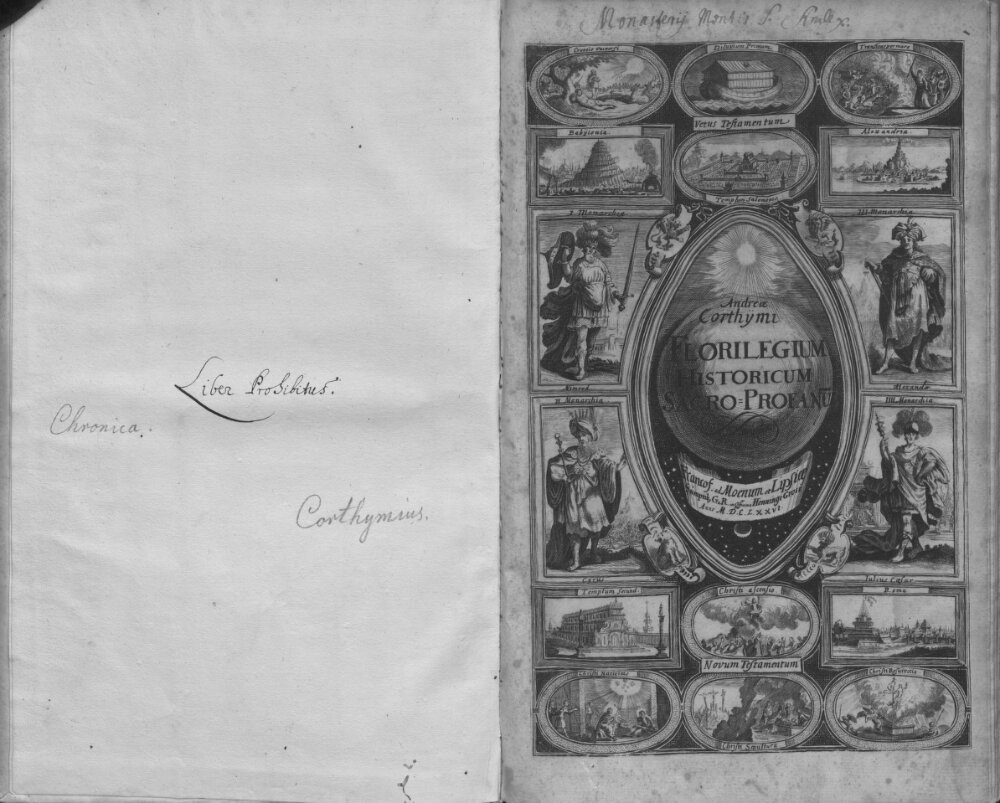 Liber Prohibitus.
Chronica.
Corthymius.
Monasterij Montis S.
Creatio universi
Diluvium Primum
Vetus Testamentum
Babylonia.
Alexandria
Templum Salomonis
I Monarchia
III Monarchia
Andreæ
Corthymi
FLORILEGIUM
HISTORICUM
SACRO=PROFANŪ
Nimrod
Alexander
II Monarchia
IIII Monarchia
Francof. ad Moenum et Lipsiæ
Anno M.DC.LXXVI
Cyrus
Julius Cæsar
Templum Secund.
Christi ascensio
Roma
Novum Testamentum
Christi Nativitas
Christi Sepultura